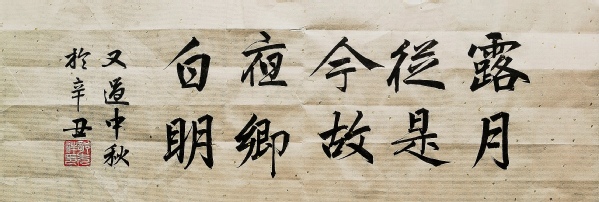 露從今夜白
月是故鄉明
又中秋
於辛丑